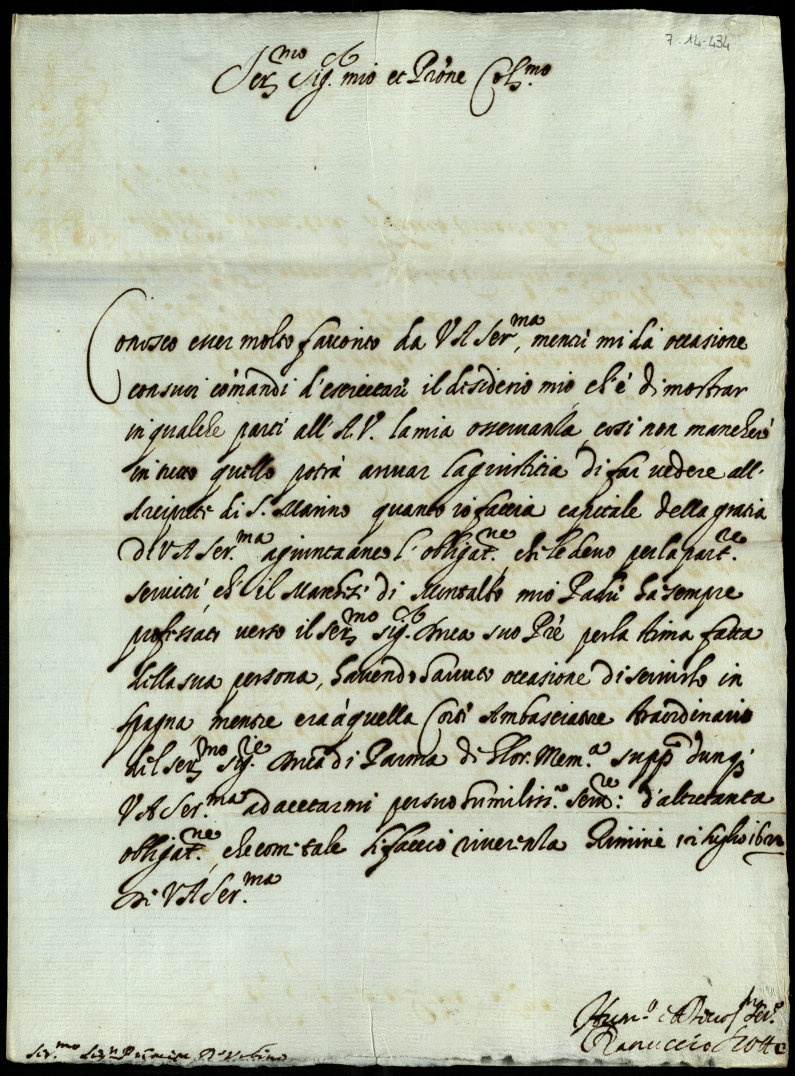 7-14-434
Ser.mo Sig.r mio et Prõne Col.mo
Conosco esser molto favorito da V A Ser.ma, mentre mi dà occasione
con suoi comandi d'esercitare il desiderio mio, ch'è di mostrar
in qualche parte all'A.V. la mia osservanza, così non mancherò
in tutto quello potrà arrivar la giustitia di far vedere all'
Arciprete di S. Marino quanto io faccia capitale della gratia
di V A Ser.ma agiunta anco l'obligat.ne, che le devo per la part.re
servitù, ch'il Marchese di Montalbo mio Padre ha sempre
professato verso il Ser.mo Sig.r Duca suo Prẽ per la stima fatta
della sua persona, havendo havuto occasione di servirlo in
Spagna mentre era à quella Corte Ambasciatore straordinario
del Ser.mo Sig.re Duca di Parma di Glor. Mem.a supp.co dunq;
V A Ser.ma ad acetarmi per suo humiliss.o Ser.re d'altretanta
obligat.ne, che com'tale li faccio riverenza Rimini 12 luglio 1622
Di V A Ser.ma
Hum.o et Devot.mo Ser.e
Ranuccio Scotto
Ser.mo Sig.r Prencipe d'Urbino